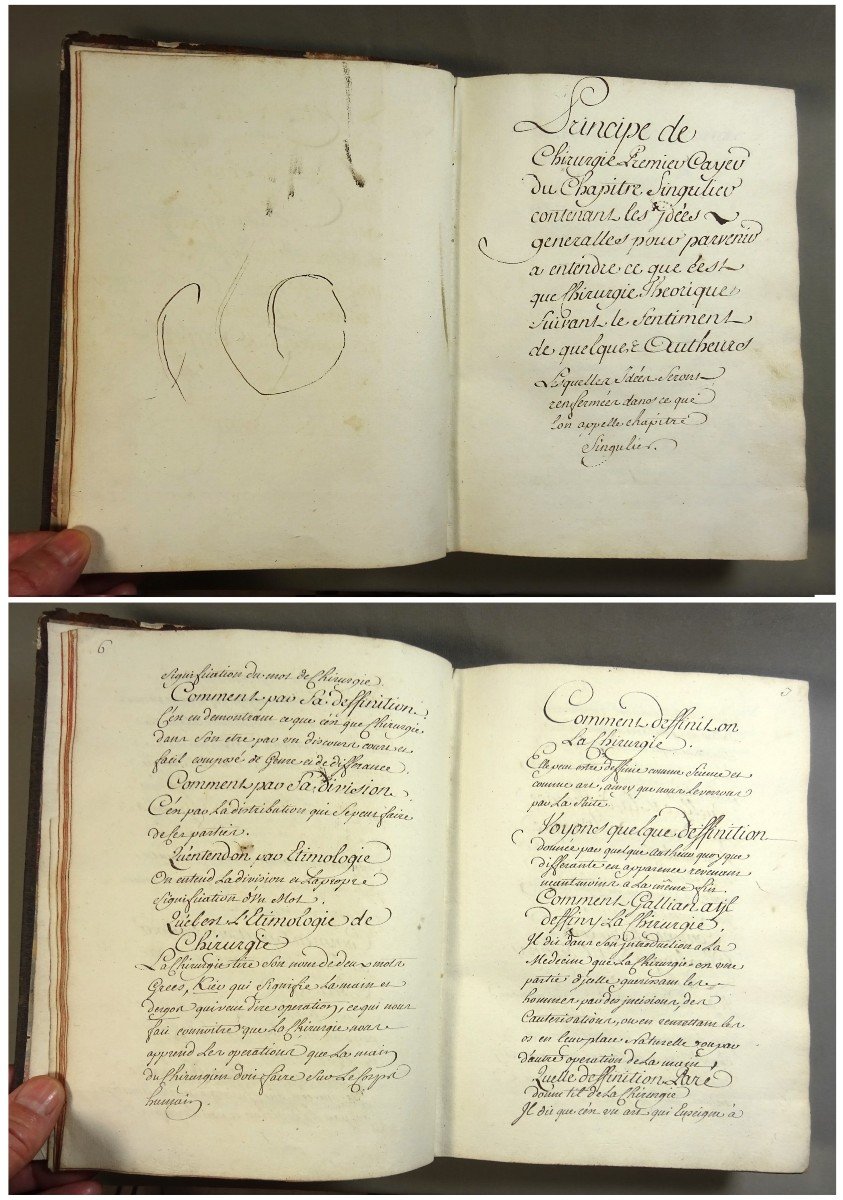 Principe de
Chirurgie Premier Cayer
du Chapitre Singulier
contenant les jdées
generalles pour parvenir
a entendre ce que c'est
que Chirurgie Theorique
Suivant le Sentiment
de quelques Autheurs
Lesquelles Idées Seront
renfermées dans ce que
lon appelle chapitre
Singulier.
6
Signification du mot de Chirurgie
Comment par Sa deffinition.
C'en en demontrant ce que c'en que Chirurgie
dans Son etre par un discours court et
facil composé de Genre et de differance.
Comment par Sa division
C'en par La distribution qui Se peut faire
de Ses parties.
Qu'entendon par Etimologie
On entend La division et La propre
Signification d'un Mot.
Quel est L'Etimologie de
Chirurgie
La Chirurgie tire Son nom de deux mots
Grecs, Kiev qui Signifie La main et
dergon qui veut dire operation, ce qui nous
fait connoitre que La Chirurgie nous
apprend Les operations que La main
du Chirurgien doit faire Sur Le Corps
humain.
Comment deffinit on
La Chirurgie.
Elle peut estre deffinie comme Science et
comme art, ainsy que nous Le verrons
par La Suite.
Voyons quelque deffinition
donnée par quelque autheur quoyque
differante en apparence revenant
neantmoins a La même fin.
Comment Gallian atjl
deffiny La Chirurgie.
Jl dit dans Son jntroduction a La
Medecine que La Chirurgie en une
partie d'jcelle guerissant les
hommes par des jncisions, des
Cauterisations, ou en remettant les
os en leur place Naturelle ou par
d'autre operation de La main.
Quelle deffinition Paré
donne til de La Chirurgie
Jl dit que c'en un art qui Enseigne à